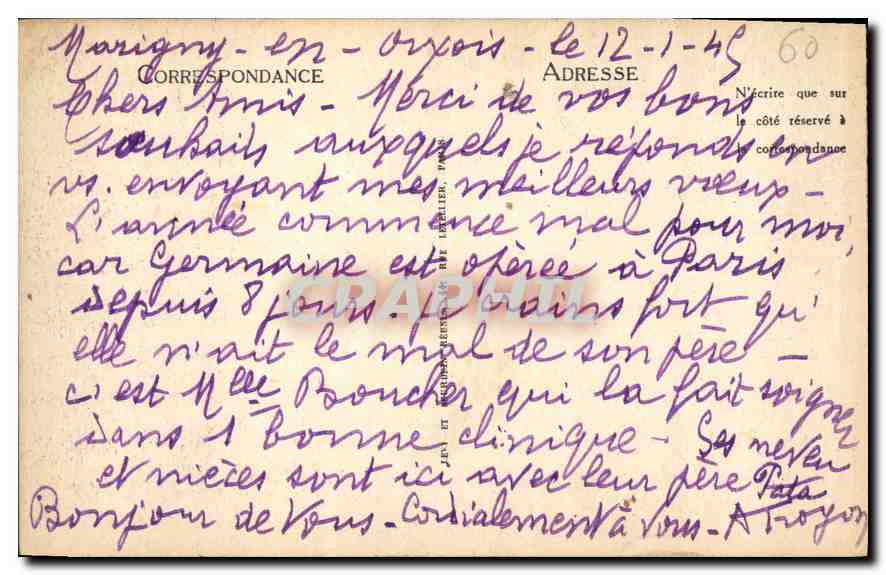 Marigny-en-Orxois - le 12-1-45
60
CORRESPONDANCE
ADRESSE
N'écrire que sur
le côté réservé à
la correspondance
Chers Amis - Merci de vos bons
souhaits auxquels je réponds en
vs. envoyant mes meilleurs vœux -
L'année commence mal pour moi,
car Germaine est opérée à Paris
depuis 8 jours. je crains fort qu'
elle n'ait le mal de son père -
c'est Mlle Boucher qui la fait soigner
dans 1 bonne clinique - Ses neveu
et nièces sont ici avec leur père
Bonjour de Vous - Cordialement à vous - A Troyon
LEVY ET NEURDEIN RÉUNIS, 44, RUE LETELLIER, PARIS
CPAPHIL